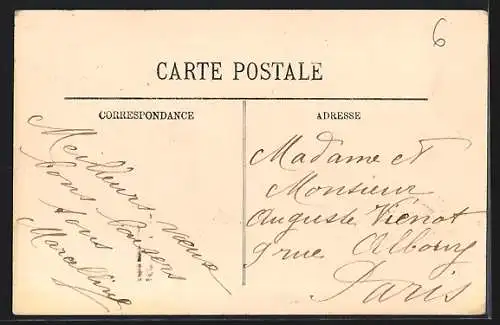 6
CARTE POSTALE
CORRESPONDANCE
ADRESSE
Meilleurs vœux
bons baisers
à tous
Marcelline
Madame et
Monsieur
Auguste Viénot
9 rue Albouy
Paris